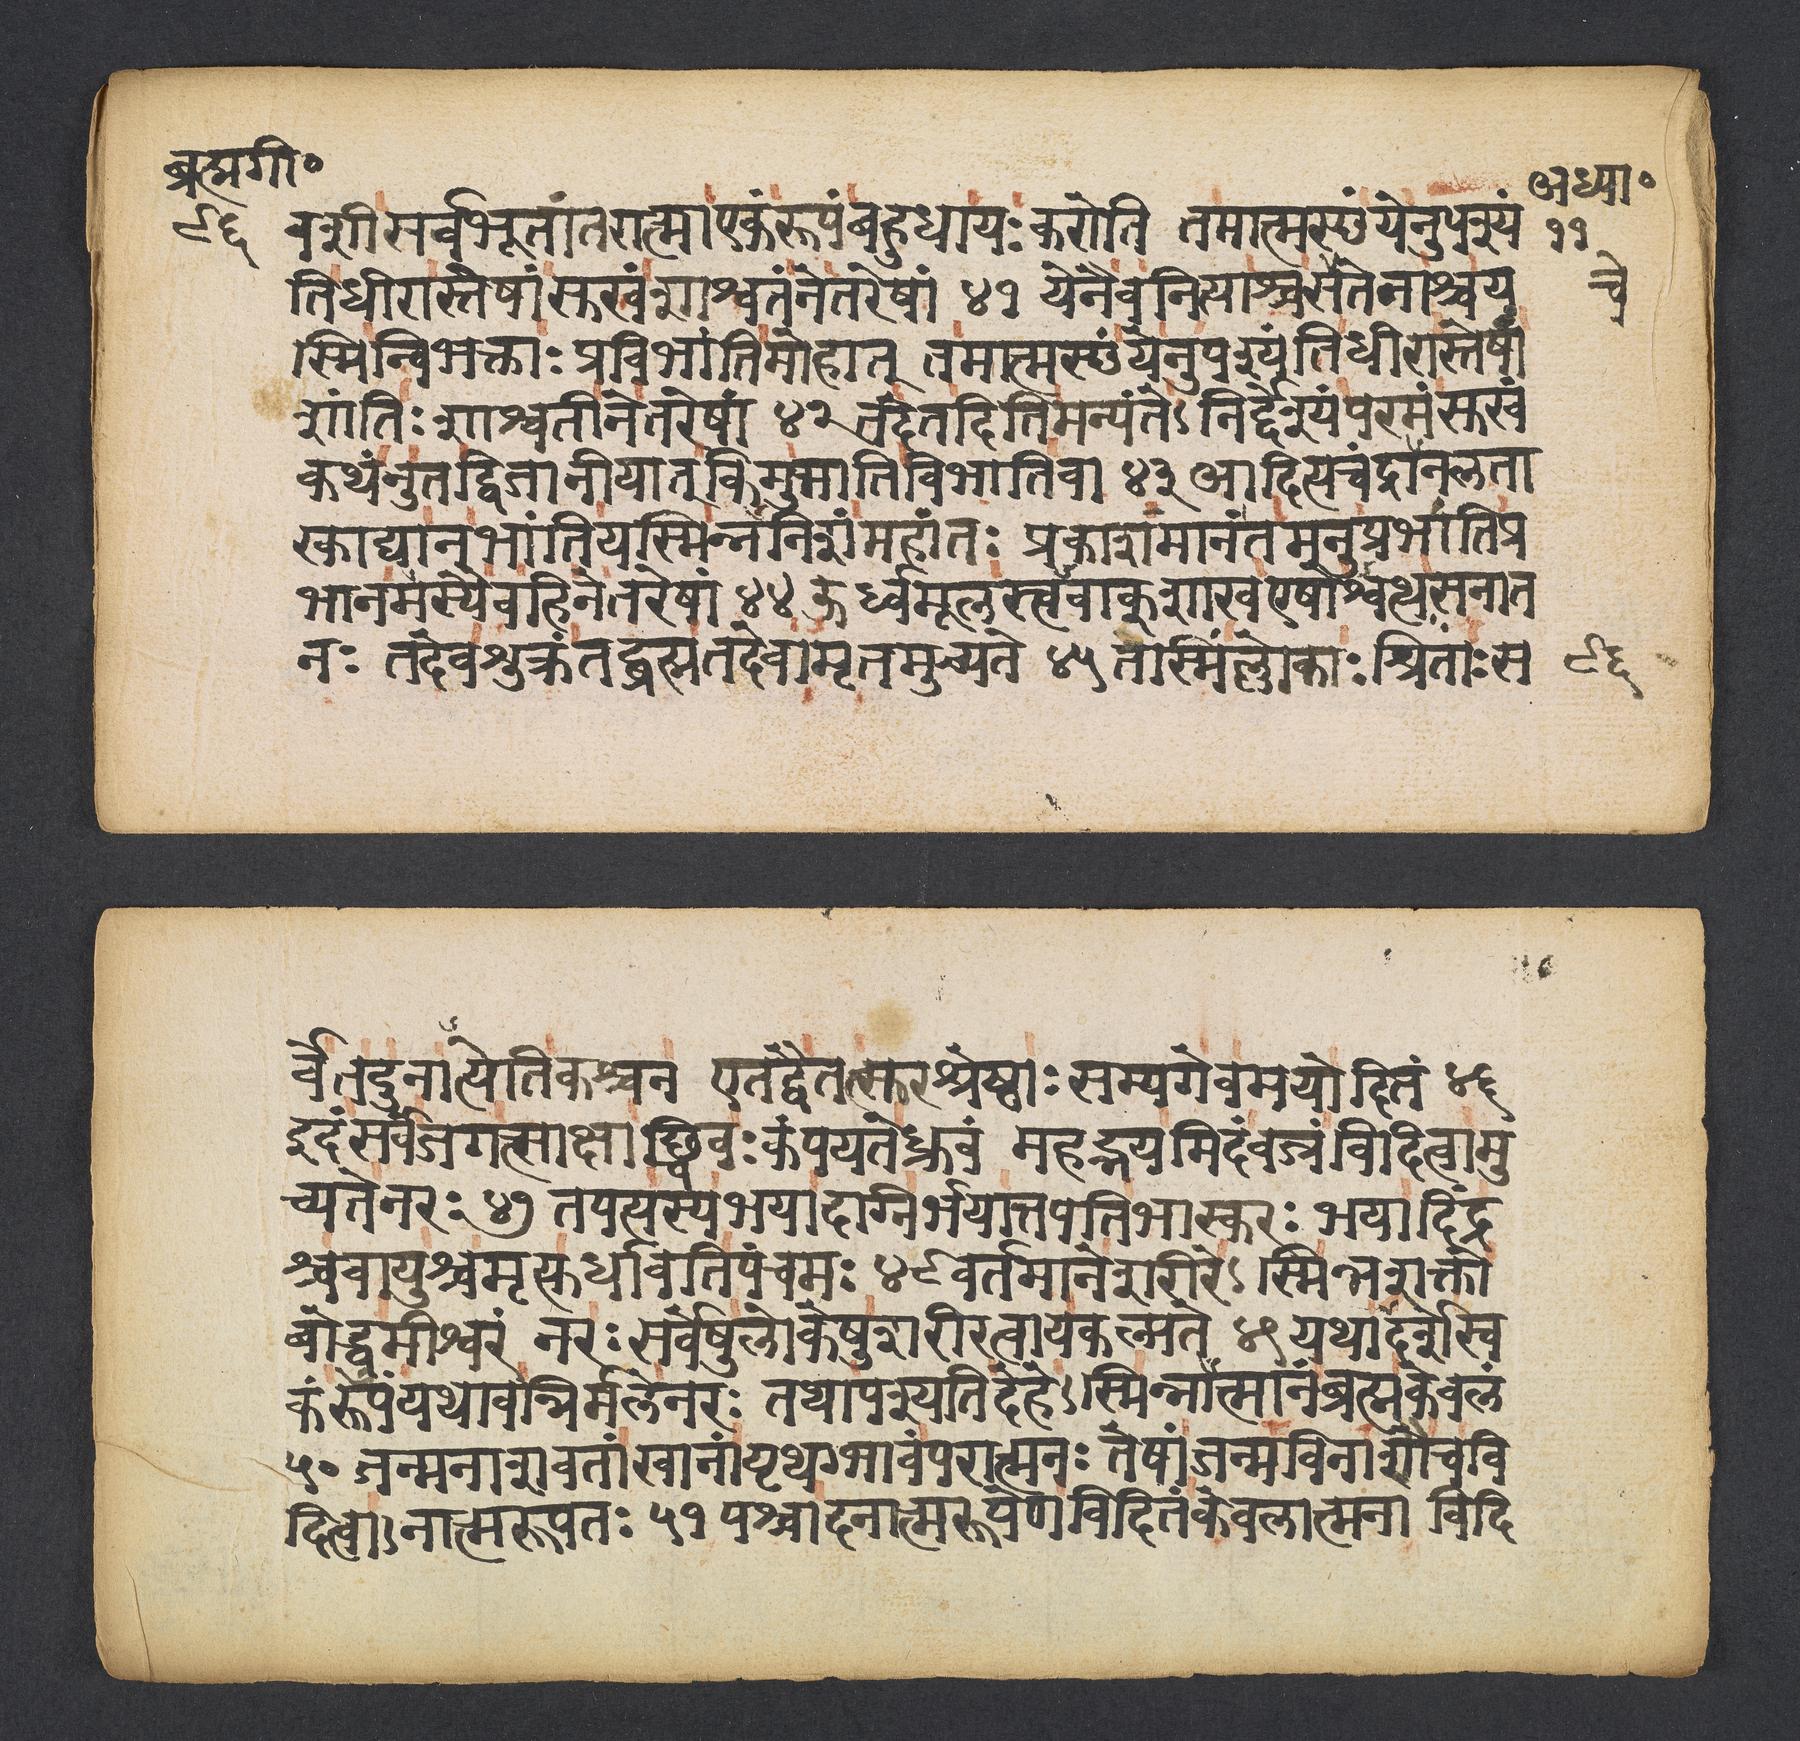 ब्रह्मगी॰
अध्या॰
८६
११
वशीसर्वभूतांतरात्माएकंरूपंबहुधायःकरोति तमात्मस्थंयेनुपश्यं
तिधीरास्तेषांसुखंशाश्वतंनेतरेषां ४१ येनैवनित्याश्चसचेतनाश्चय
चे
स्मिन्विभक्ताः प्रविभांतिमोहात् तमात्मस्थंयेनुपश्यंतिधीरास्तेषां
शांतिःशाश्वतीनेतरेषां ४२ तदेतदितिमन्यंतेऽनिर्द्देश्यंपरमंसुखं
कथंनुतद्विजानीयात्किमुभातिविभातिवा ४३ आदित्यचंद्रानलता
रकाद्यानभांतियस्मिन्ननिशंमहांतः प्रकाशमानंतमनुप्रभांतिप्र
भानमस्यैवहिनेतरेषां ४४ ऊर्ध्वमूलस्त्ववाक्शाखएषोश्वत्थसनात
नः तदेवशुक्रंतद्ब्रह्मतदेवामृतमुच्यते ४५ तस्मिंल्लोकाःश्रिताःस
८६
र्वेतदुनात्येतिकश्चन एतद्वैतत्सुरश्रेष्ठाःसम्यगेवमयोदितं ४६
इदंसर्वंजगत्साक्षाच्छिवःकंपयतेध्रुवं महद्भयमिदंवज्रंविदित्वामु
च्यतेनरः ४७ तपत्यस्यभयादग्निर्भयात्तपतिभास्करः भयादिंद्र
श्चवायुश्चमृत्युर्धावतिपंचमः ४८ वर्तमानेशरीरेऽस्मिन्नशक्तो
बोद्धुमीश्वरं नरःसर्वेषुलोकेषुशरीरत्वायकल्पते ४९ यथादर्शेस्व
कंरूपंयथावन्निर्मलेनरः तथापश्यतिदेहेऽस्मिन्नात्मानंब्रह्मकेवलं
५० जन्मनाशवतांखानांपृथग्भावंपरात्मनः तेषांजन्मविनाशौचवि
दित्वाऽनात्मरूपतः ५१ पश्चादनात्मरूपेणविदितंकेवलात्मना विदि